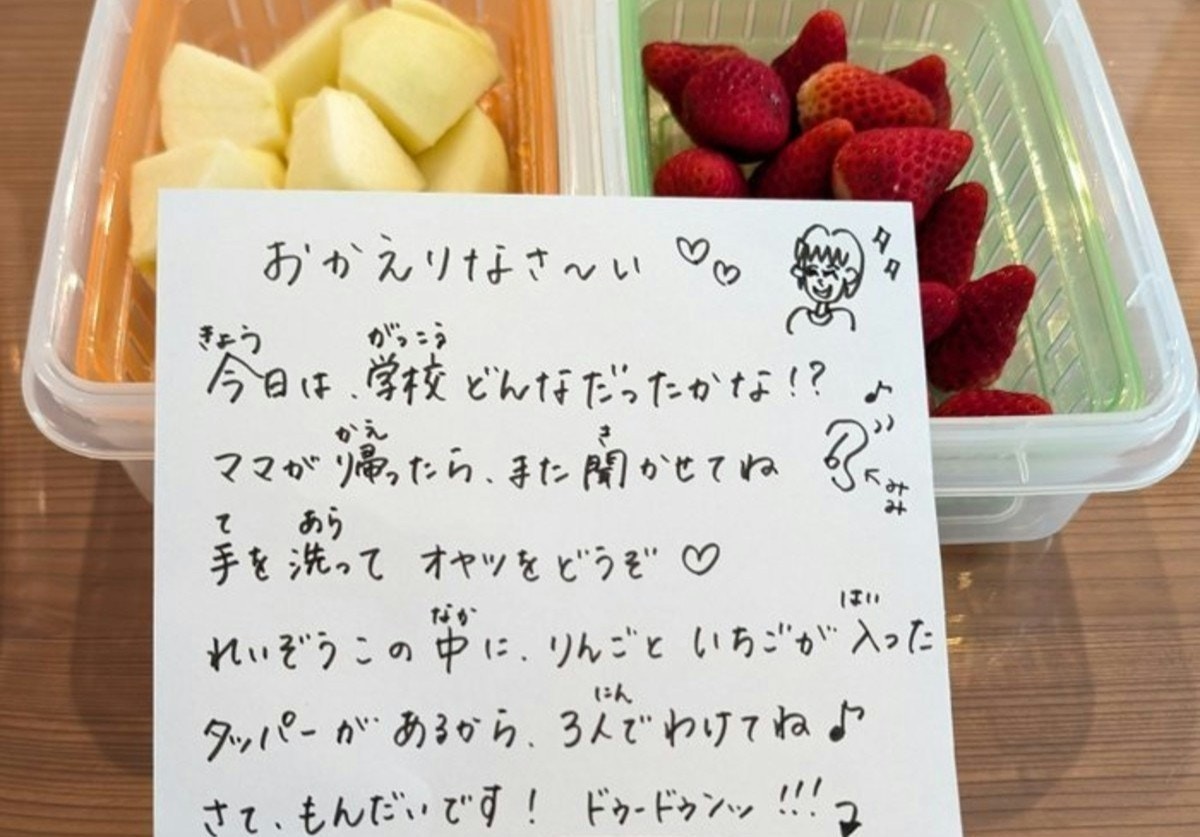 おかえりなさ～い ♡♡
きょう がっこう
今日は、学校どんなだったかな!?
かえ き
ママが帰ったら、また聞かせてね
みみ
て あら
手を洗って オヤツをどうぞ♡
なか はい
れいぞうこの中に、りんごと いちごが入った
にん
タッパーがあるから、3人でわけてね♪
さて、もんだいです! ドゥードゥンッ!!!